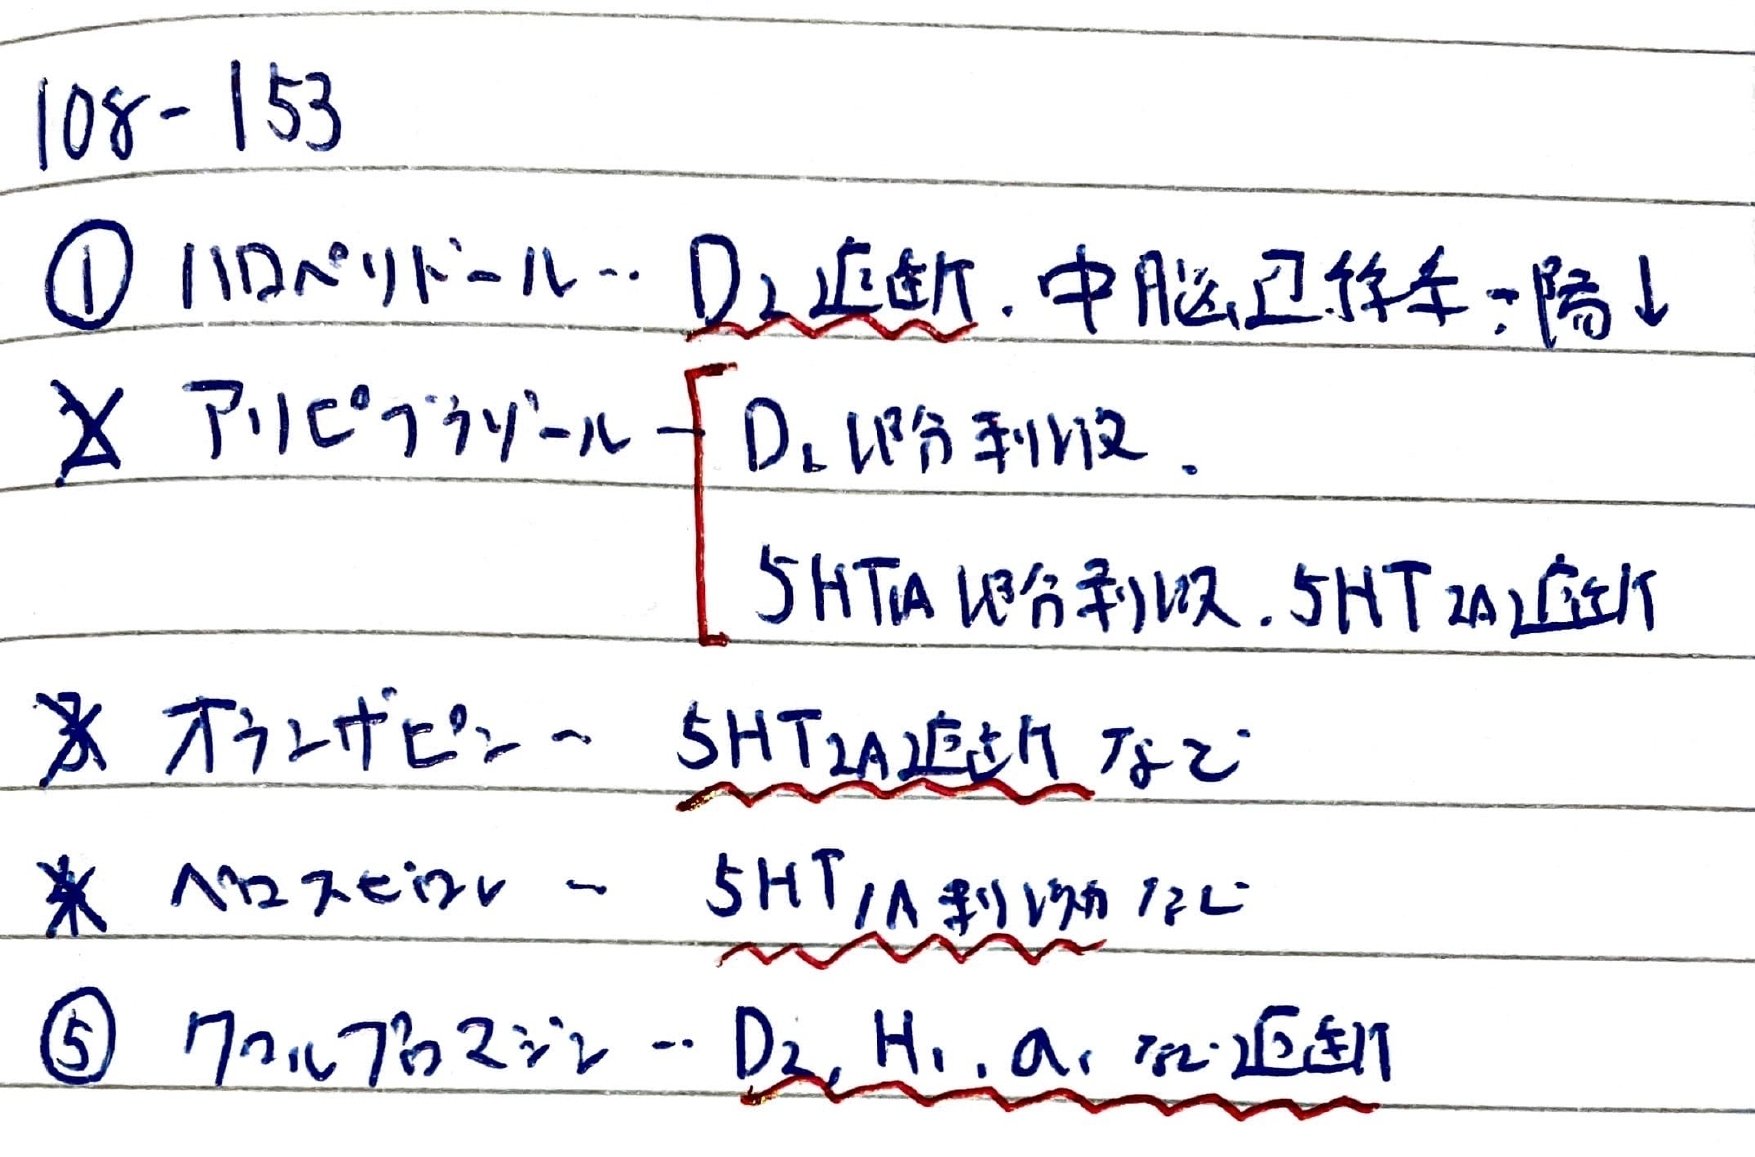 108-153
① ハロペリドール… D2遮断. 中脳辺縁系÷陽↓
2 アリピプラゾール - D2部分刺激.
5HT1A部分刺激. 5HT2A遮断
3 オランザピン ~ 5HT2A遮断 など
4 ペロスピロン ~ 5HT1A刺激 など
⑤ クロルプロマジン … D2, H1, α1 など遮断